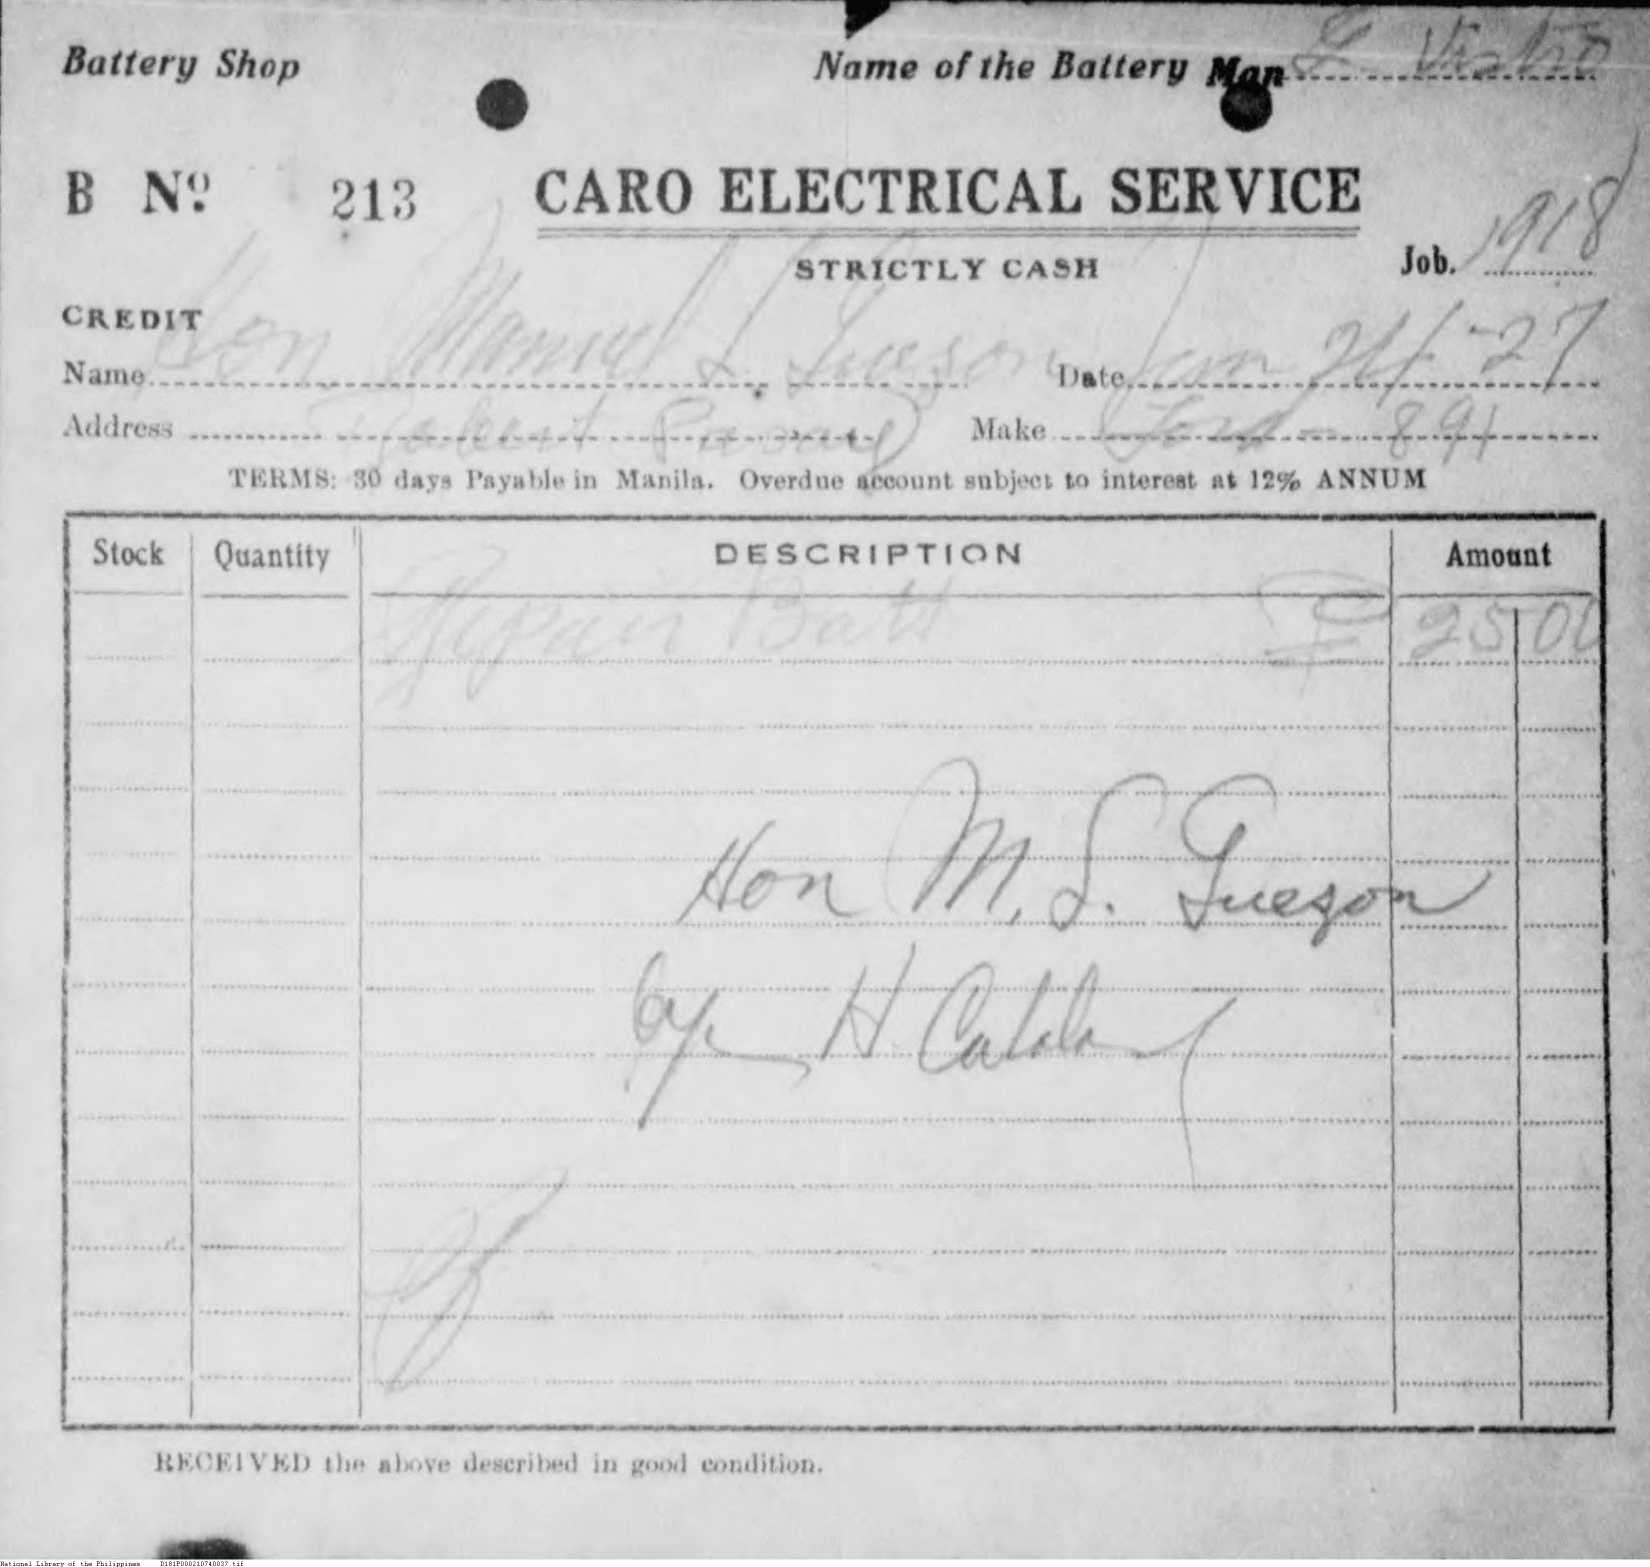 Battery Shop
Name of the Battery Man
B Nº 213
CARO ELECTRICAL SERVICE
STRICTLY CASH
Job. 1918
CREDIT
Name Hon Manuel L Quezon Date Jan 24/-27
Address Robert Pasay Make Ford - 891
TERMS: 30 days Payable in Manila. Overdue account subject to interest at 12% ANNUM
Stock Quantity DESCRIPTION Amount
Repair Batt ₱ 25 00
Hon M. L. Quezon
by H
RECEIVED the above described in good condition.
National Library of the Philippines D181P000210740037.tif